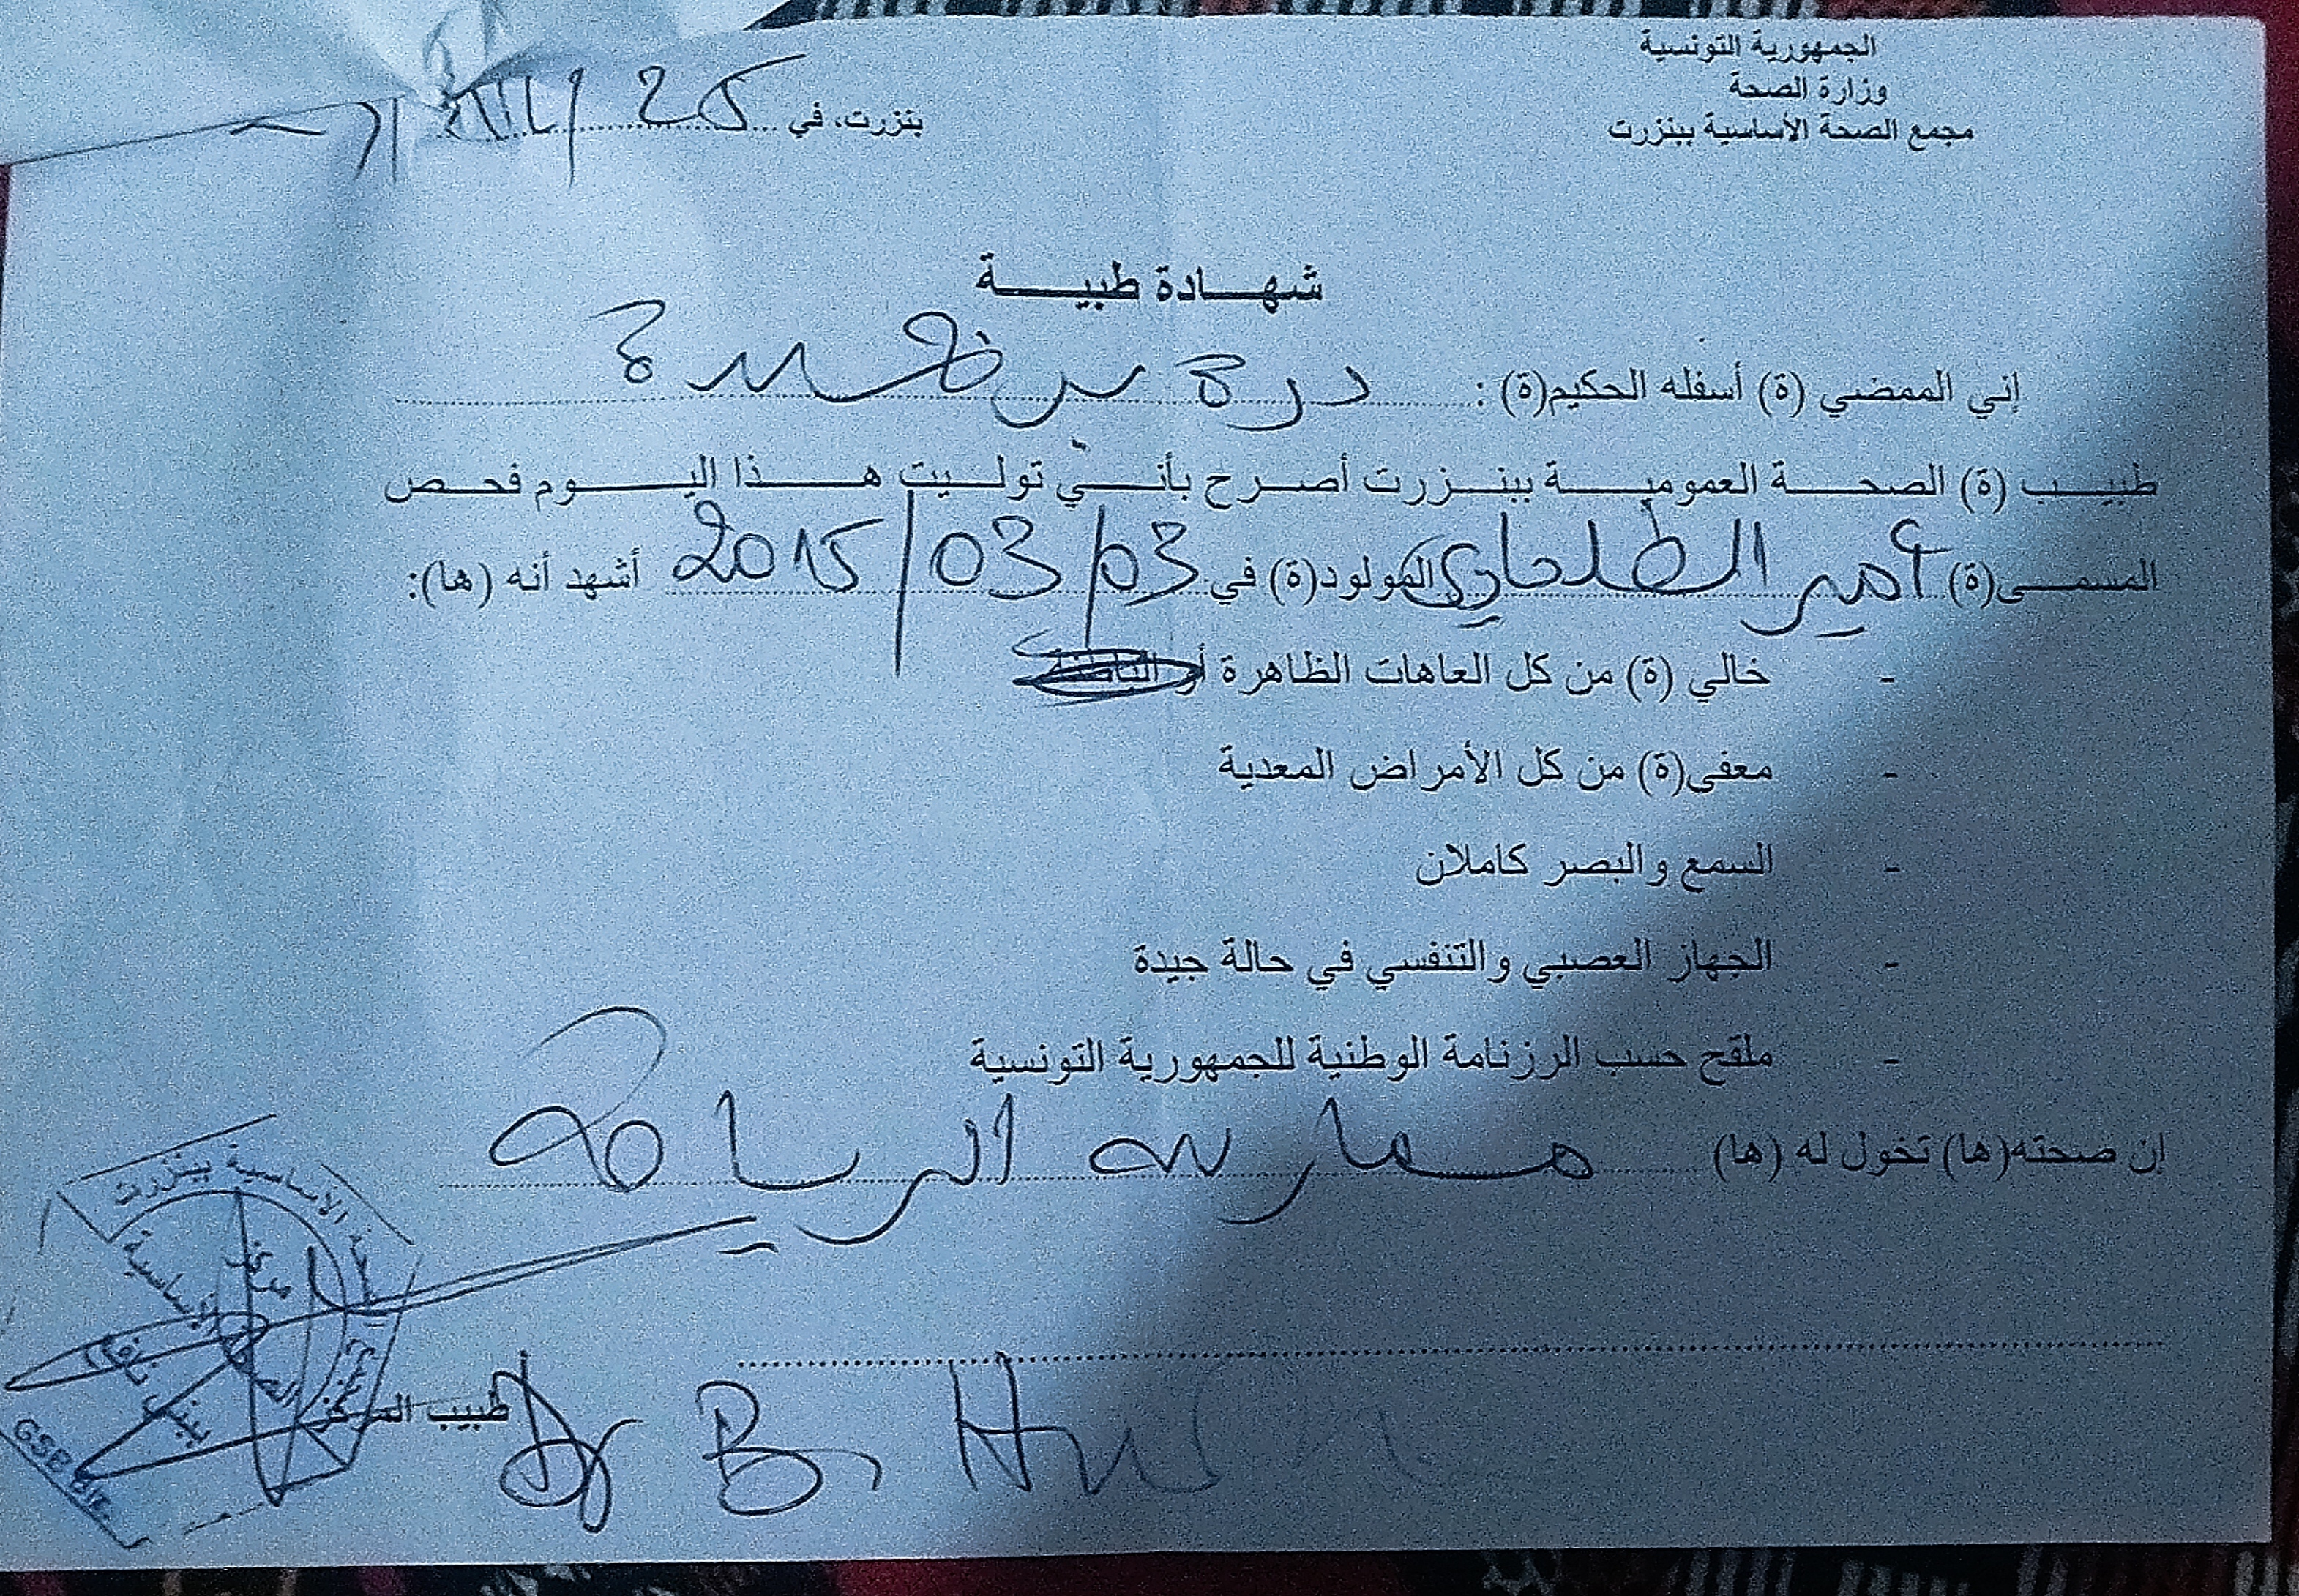 الجمهورية التونسية
وزارة الصحة
مجمع الصحة الأساسية ببنزرت
بنزرت، في 25
شهادة طبية
إني الممضي (ة) أسفله الحكيم(ة) : درة بن
طبيب (ة) الصحة العمومية ببنزرت أصرح بأني توليت هذا اليوم فحص
المسمى(ة) أمير الطلحاوي المولود(ة) في 03/03/2015 أشهد أنه (ها):
- خالي (ة) من كل العاهات الظاهرة أو
- معفى(ة) من كل الأمراض المعدية
- السمع والبصر كاملان
- الجهاز العصبي والتنفسي في حالة جيدة
- ملقح حسب الرزنامة الوطنية للجمهورية التونسية
إن صحته(ها) تخول له (ها) ممارسة الرياضة
طبيب المركز
Dr B.
الأساسية ببنزرت
مركز
الأساسية
GSB Bize